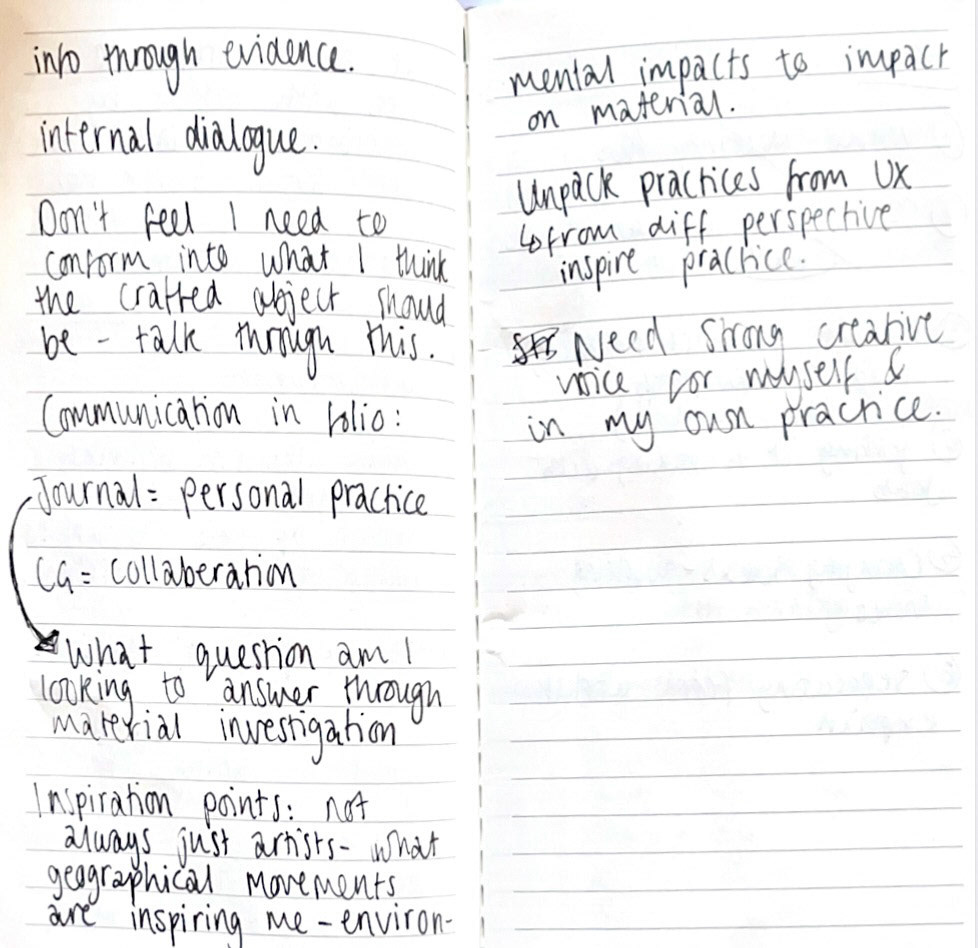 info through evidence.
internal dialogue.
Don't feel I need to
conform into what I think
the crafted object should
be - talk through this.
Communication in folio:
Journal = personal practice
CG = collaberation
What question am I
looking to answer through
material investigation
Inspiration points: not
always just artists - what
geographical movements
are inspiring me - environ-
mental impacts to impact
on material.
Unpack practices from UX
↳ from diff perspective
inspire practice.
Need strong creative
voice for myself &
in my own practice.